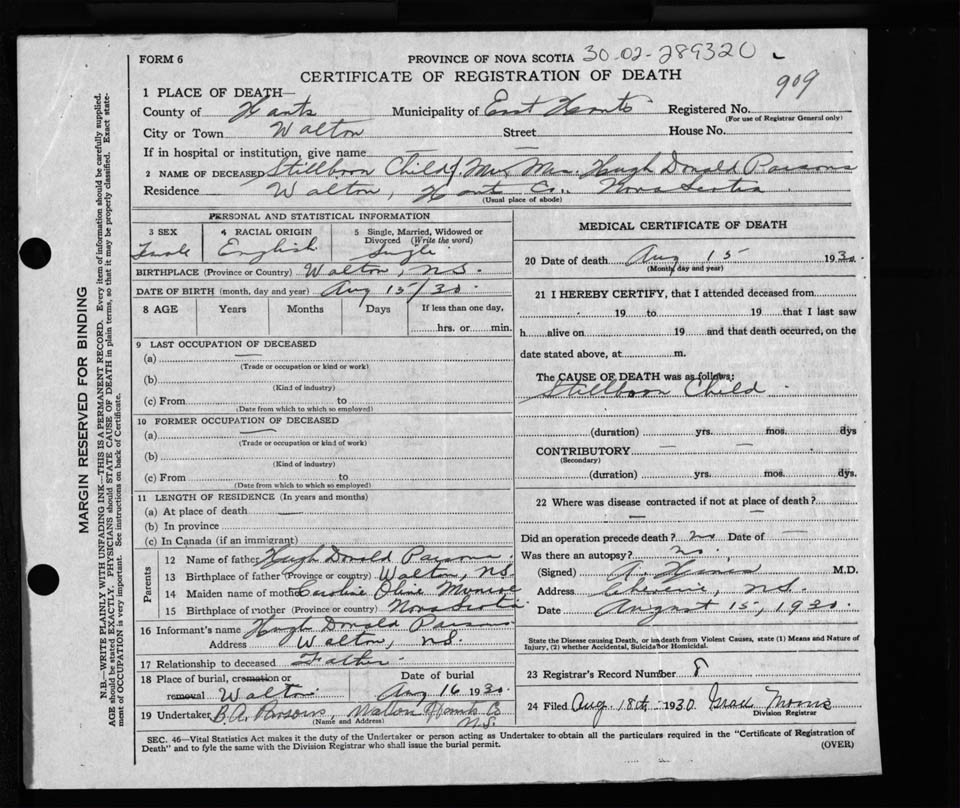 FORM 6
PROVINCE OF NOVA SCOTIA 30-02-289320
CERTIFICATE OF REGISTRATION OF DEATH
909
1 PLACE OF DEATH—
County of Hants Municipality of East Hants Registered No.
(For use of Registrar General only)
City or Town Walton Street House No.
If in hospital or institution, give name
2 NAME OF DECEASED Stillborn Child Mr & Mrs. Hugh Donald Parsons
Residence Walton, Hants Co., Nova Scotia
(Usual place of abode)
PERSONAL AND STATISTICAL INFORMATION
3 SEX 4 RACIAL ORIGIN 5 Single, Married, Widowed or Divorced (Write the word)
English Single
BIRTHPLACE (Province or Country) Walton, N.S.
DATE OF BIRTH (month, day and year) Aug 15/30
8 AGE Years Months Days If less than one day,
hrs. or min.
9 LAST OCCUPATION OF DECEASED
(a) —
(Trade or occupation or kind or work)
(b)
(Kind of industry)
(c) From to
(Date from which to which so employed)
10 FORMER OCCUPATION OF DECEASED
(a) —
(Trade or occupation or kind of work)
(b)
(Kind of industry)
(c) From to
(Date from which to which so employed)
11 LENGTH OF RESIDENCE (In years and months)
(a) At place of death —
(b) In province
(c) In Canada (if an immigrant)
Parents
12 Name of father Hugh Donald Parsons
13 Birthplace of father (Province or country) Walton, N.S.
14 Maiden name of mother Caroline Olive Munroe
15 Birthplace of mother (Province or country) Nova Scotia
16 Informant's name Hugh Donald Parsons
Address Walton, N.S.
17 Relationship to deceased Father
18 Place of burial, cremation or removal Walton Date of burial Aug 16 1930
19 Undertaker B.A. Parsons, Walton Hants Co N.S.
(Name and Address)
MEDICAL CERTIFICATE OF DEATH
20 Date of death Aug 15 1930
(Month, day and year)
21 I HEREBY CERTIFY, that I attended deceased from
19 to 19 that I last saw
h alive on 19 and that death occurred, on the
date stated above, at m.
The CAUSE OF DEATH was as follows:
Stillborn Child
(duration) yrs. mos. dys
CONTRIBUTORY — —
(Secondary)
(duration) yrs. mos. dys.
22 Where was disease contracted if not at place of death?
Did an operation precede death? no Date of —
Was there an autopsy? no
(Signed) M.D.
Address N.S.
Date August 15, 1930
State the Disease causing Death, or in death from Violent Causes, state (1) Means and Nature of
Injury, (2) whether Accidental, Suicidal or Homicidal.
23 Registrar's Record Number 8
24 Filed Aug. 18th 1930
Division Registrar
SEC. 46—Vital Statistics Act makes it duty of the Undertaker or person acting as Undertaker to obtain all the particulars required in the "Certificate of Registration of
Death" and to fyle the same with the Division Registrar who shall issue the burial permit.
(OVER)
MARGIN RESERVED FOR BINDING
N.B.—WRITE PLAINLY WITH UNFADING INK—THIS IS A PERMANENT RECORD. Every item of information should be carefully supplied.
AGE should be stated EXACTLY. PHYSICIANS should STATE CAUSE OF DEATH in plain terms, so that it may be properly classified. Exact statement of OCCUPATION is very important. See instructions on back of Certificate.